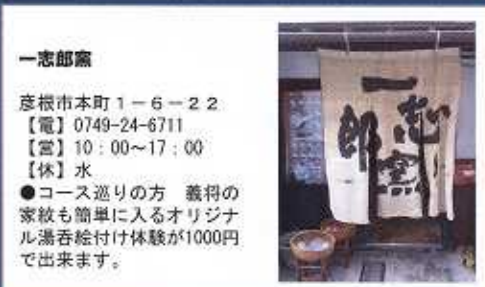 一志郎窯
彦根市本町１－６－２２
【電】0749-24-6711
【営】10：00～17：00
【休】水
●コース巡りの方　義将の
家紋も簡単に入るオリジナ
ル湯呑絵付け体験が1000円
で出来ます。
一志郎窯